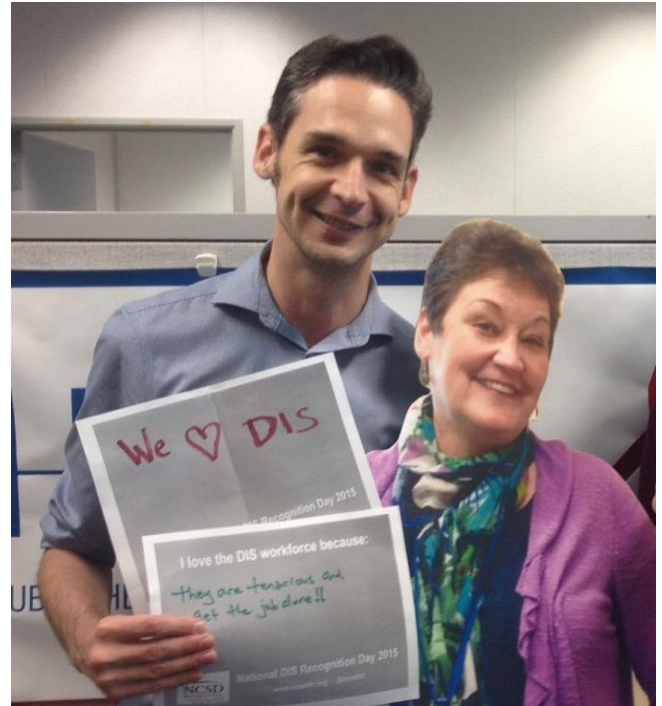 We ♡ DIS
DIS Recognition Day 2015
I love the DIS workforce because:
they are tenacious and
get the job done!!
National DIS Recognition Day 2015
NCSD